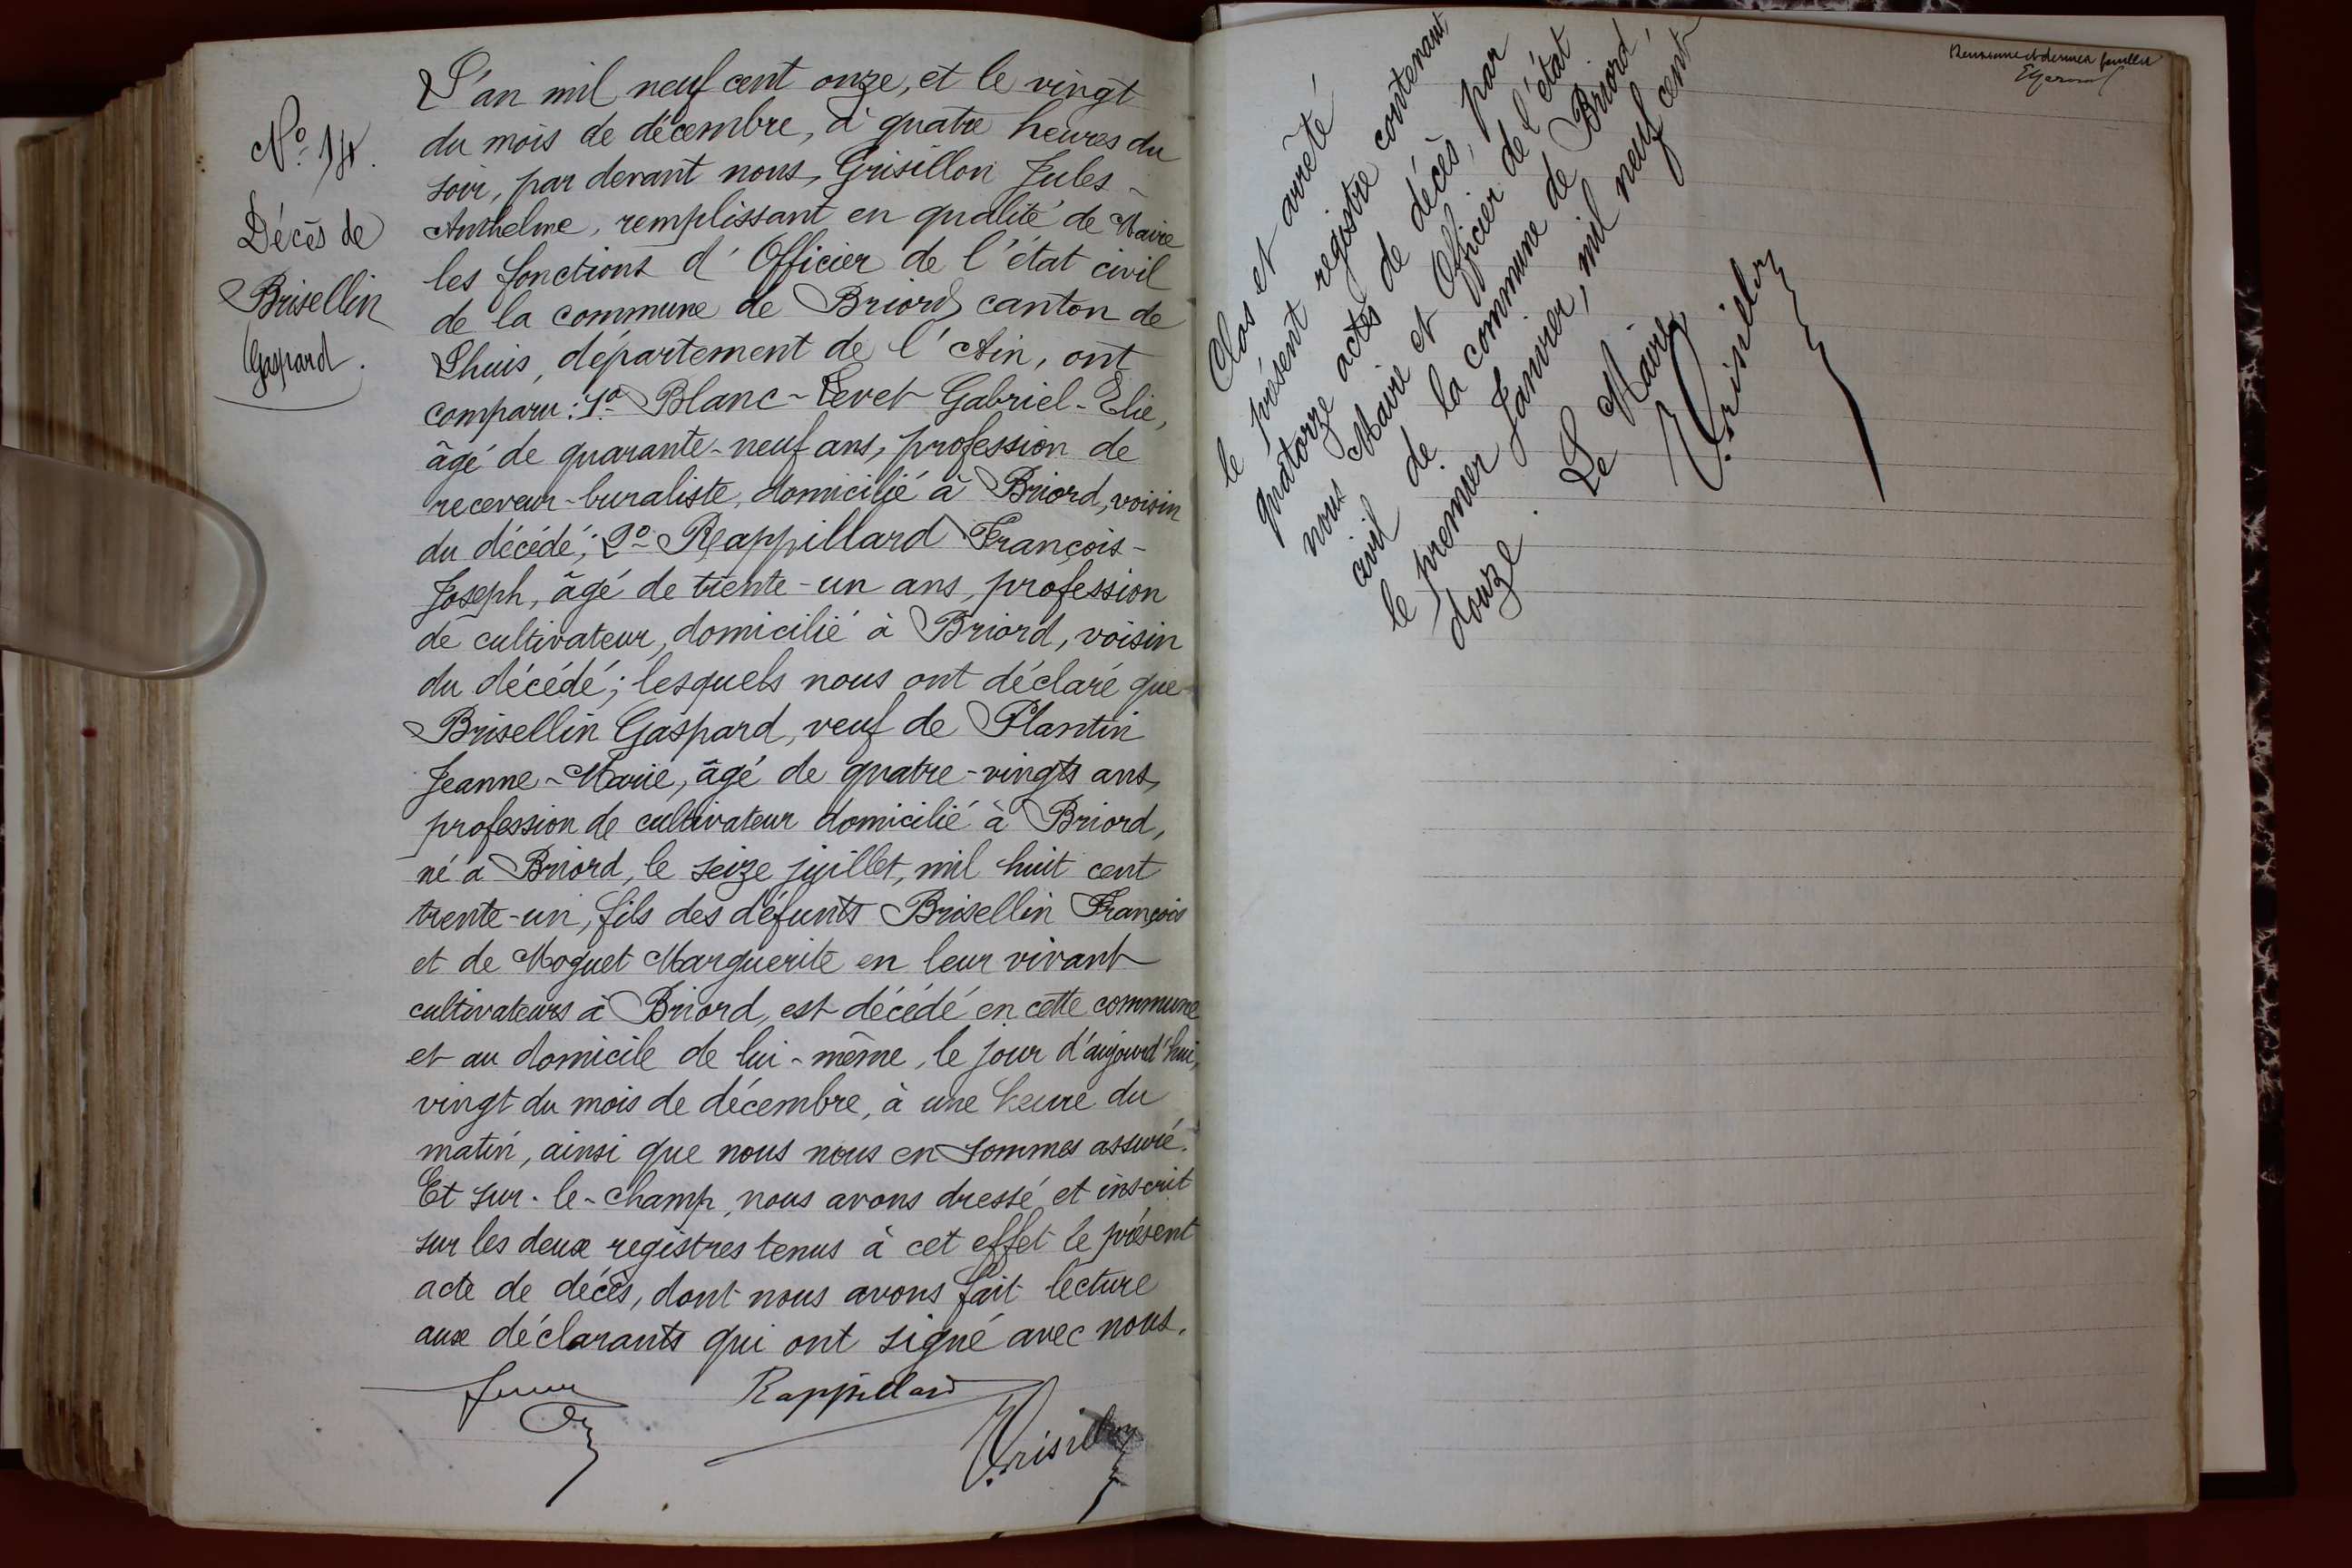 No. 14.
Décès de
Brisellin
Gaspard.
L'an mil neuf cent onze, et le vingt
du mois de décembre, à quatre heures du
soir, par devant nous, Grisillon Jules-
Anthelme, remplissant en qualité de Maire
les fonctions d'Officier de l'état civil
de la commune de Briord canton de
Lhuis, département de l'Ain, ont
comparu: 1o Blanc-Levet Gabriel-Elie,
âgé de quarante-neuf ans, profession de
receveur-buraliste, domicilié à Briord, voisin
du décédé; 2o Rappillard François-
Joseph, âgé de trente-un ans, profession
de cultivateur, domicilié à Briord, voisin
du décédé; lesquels nous ont déclaré que
Brisellin Gaspard, veuf de Plantin
Jeanne-Marie, âgé de quatre-vingts ans,
profession de cultivateur domicilié à Briord,
né à Briord, le seize juillet, mil huit cent
trente-un, fils des défunts Brisellin François
et de Moguet Marguerite en leur vivant
cultivateurs à Briord, est décédé en cette commune
et au domicile de lui-même, le jour d'aujourd'hui,
vingt du mois de décembre, à une heure du
matin, ainsi que nous nous en sommes assuré.
Et sur-le-champ, nous avons dressé et inscrit
sur les deux registres tenus à cet effet le présent
acte de décès, dont nous avons fait lecture
aux déclarants qui ont signé avec nous.
Rappillard
Grisillon
Clos et arrêté
le présent registre contenant
quatorze actes de décès, par
nous Maire et Officier de l'état
civil de la commune de Briord,
le premier Janvier, mil neuf cent
douze.
Le Maire,
Grisillon
et dernier feuillet